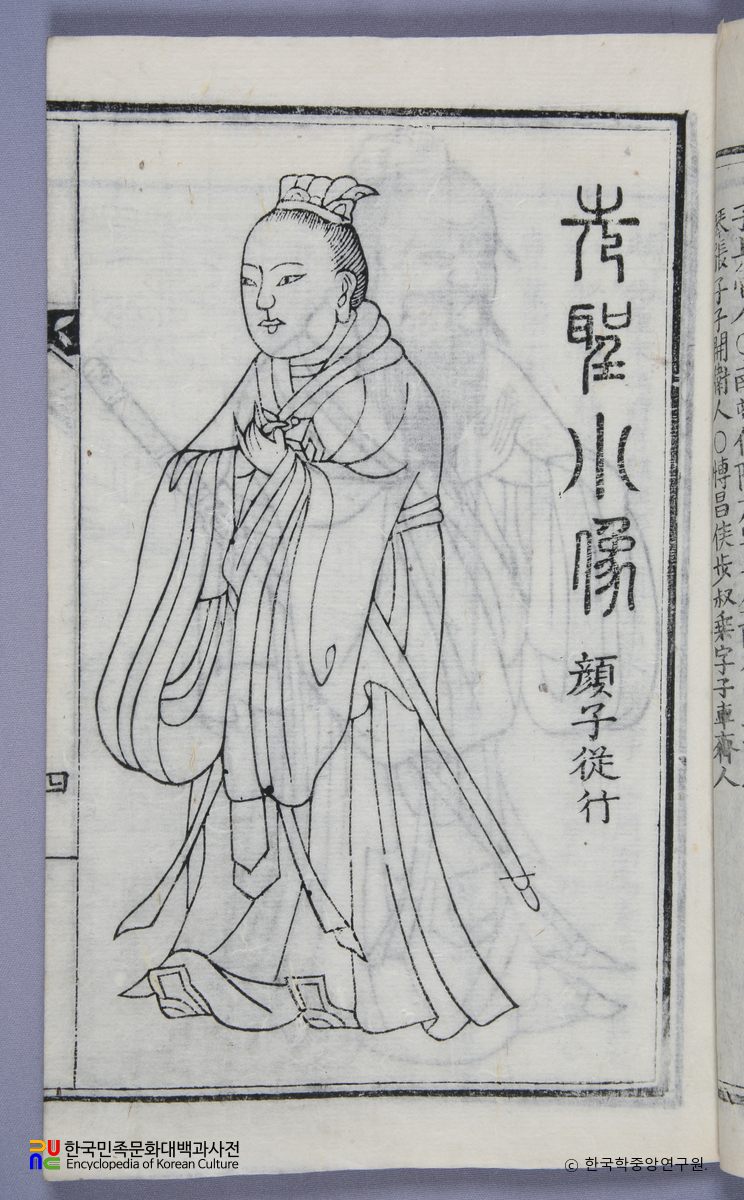 琴張字子開衛人〇博昌侯步叔乘字子車齊人
先聖小像
顔子從行
四
한국민족문화대백과사전
Encyclopedia of Korean Culture
© 한국학중앙연구원.